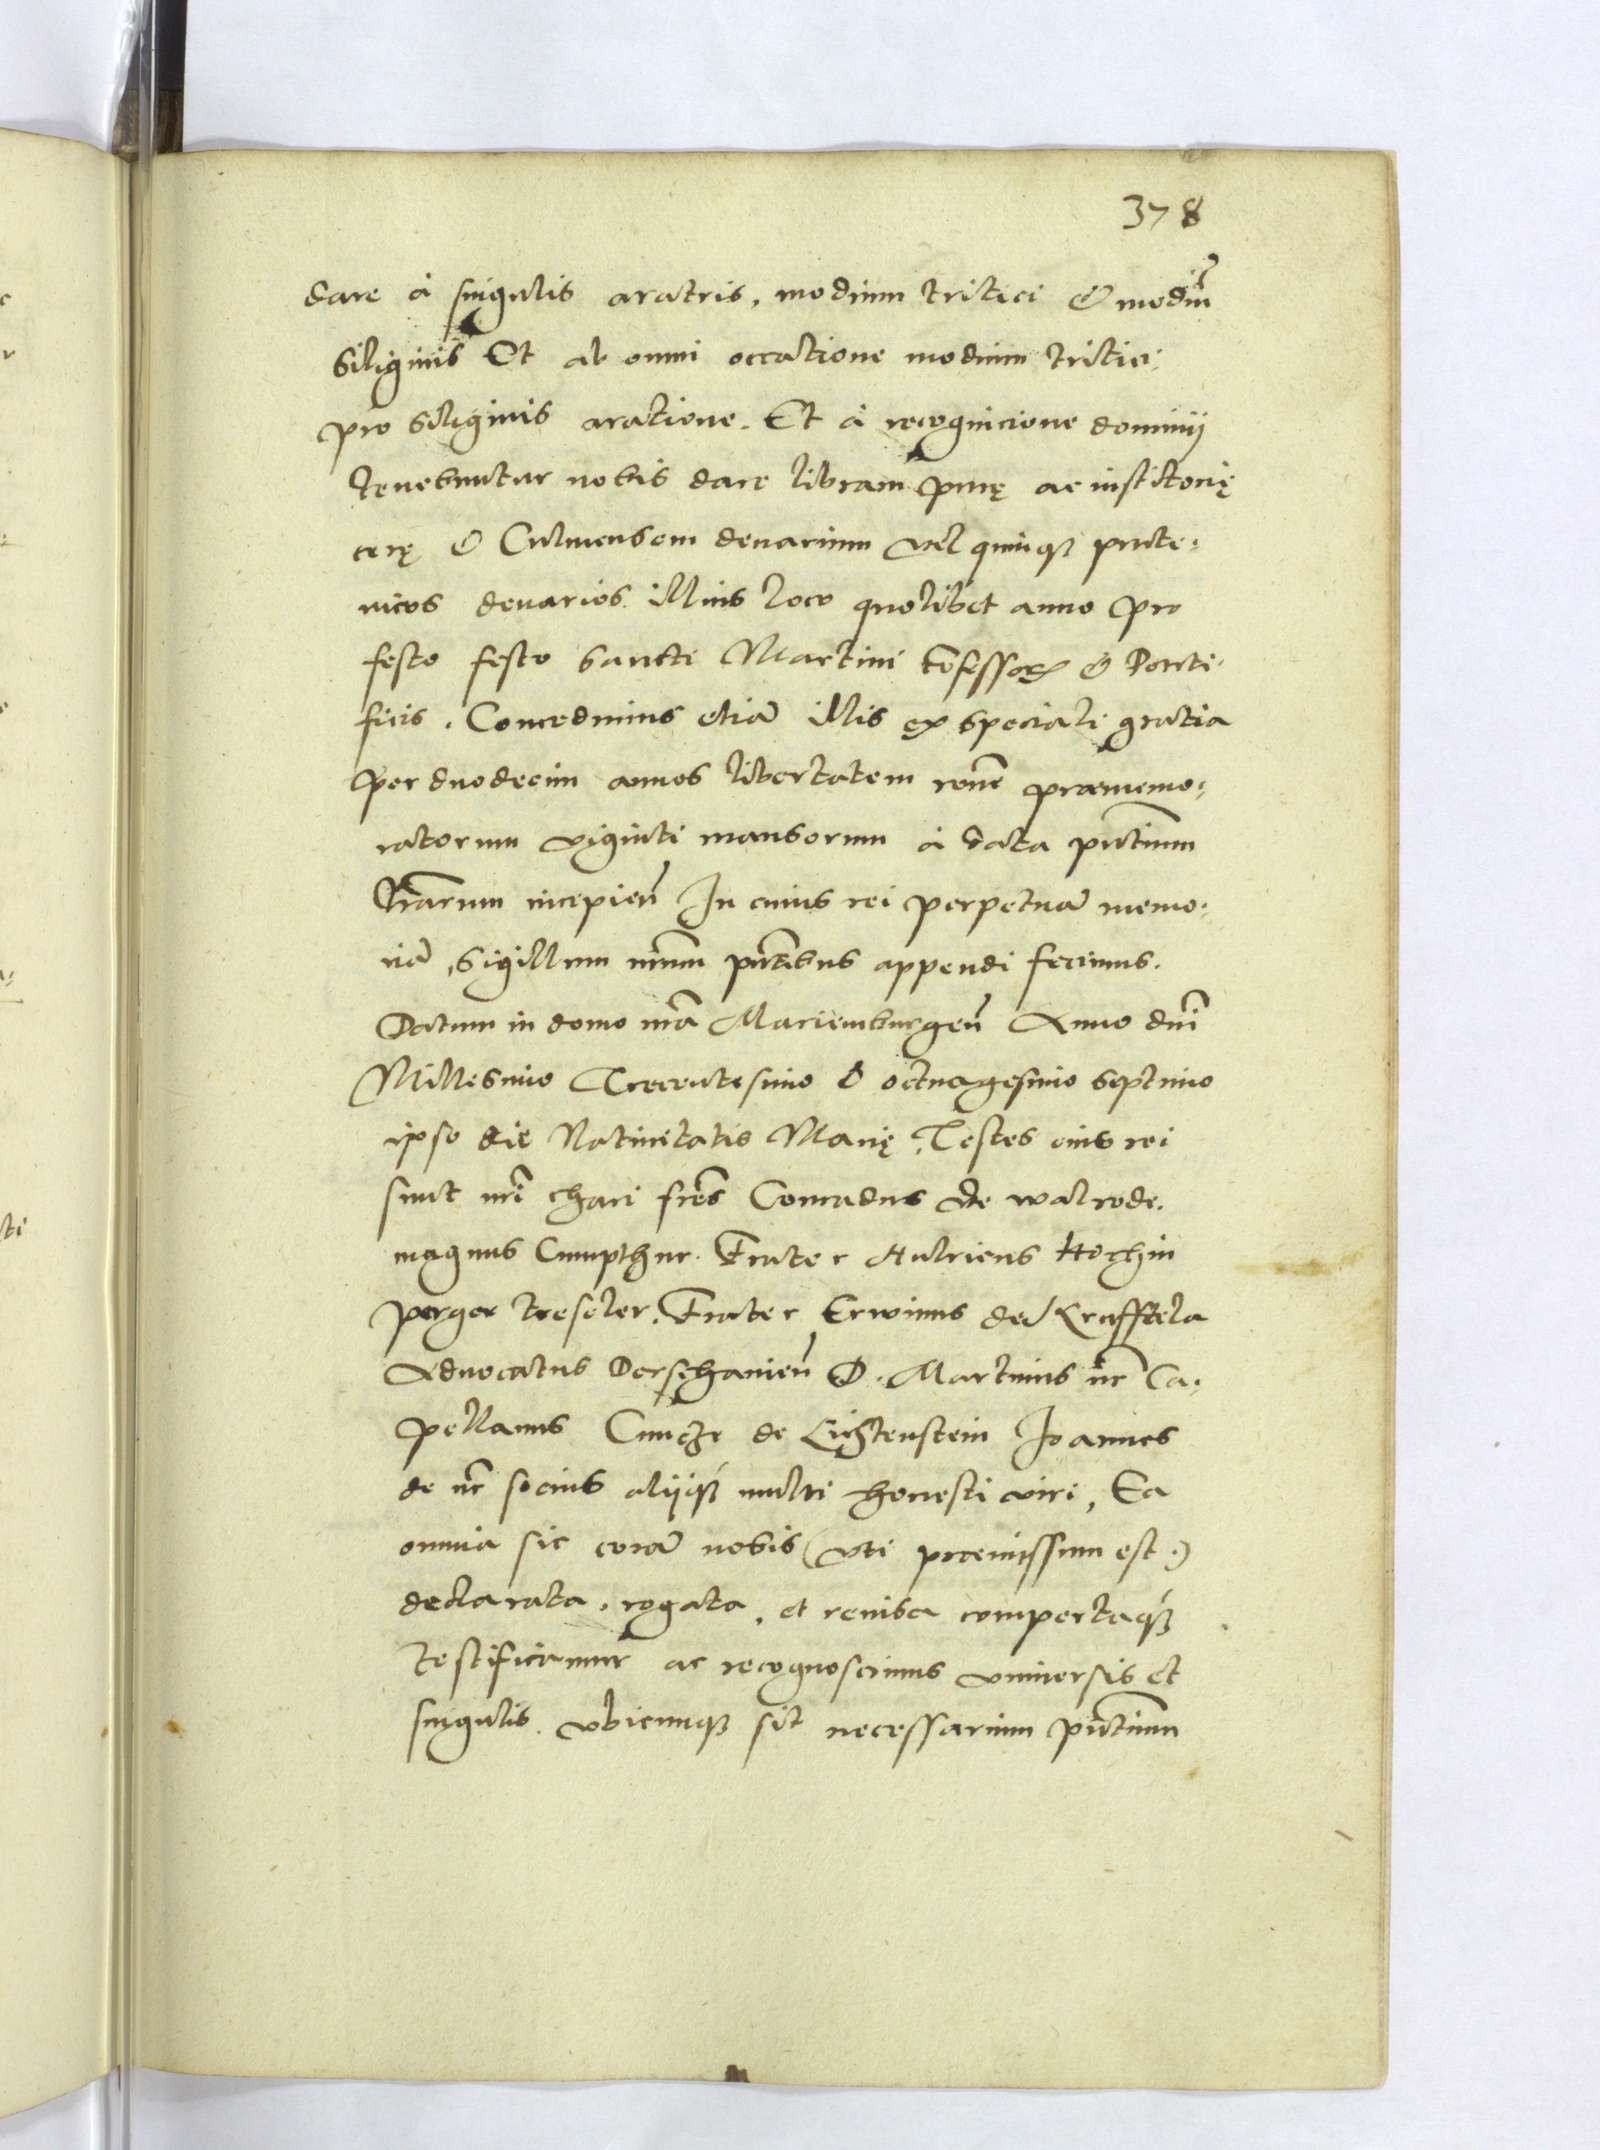 378
dare à singulis aratris, modium tritici & modiū
Siliginis Et ab omni occatione modium tritici
pro Siliginis aratione. Et à recognicione dominij
tenebuntur nobis dare libram purę ac institorię
cerę & Culmensem denarium vel quinq3 prute-
nicos denarios illius loco quolibet anno pro
festo festo Sancti Martini Cōfessoris & Ponti-
ficis. Concedimus etiā illis ex speciali gratia
per duodecim annos libertatem rōne praememo-
ratorum viginti mansorum à data pn̄tium
Lr̄arum incepien̄ In cuius rei perpetuā memo-
riā, Sigillum nr̄um pn̄tibus appendi fecimus.
Datum in domo nr̄a Mariemburgen̄ Anno dn̄i
Millesimo Trecentesimo & octuagesimo septimo
ipso die Natiuitatis Marię, Testes eius rei
sunt nr̄i chari frēs Conradus de walrode.
magnus Cumpthur. Frater Hulricus Hochin
perger treseler, Frater Erwinus de Krufftela
Aduocatus Derschanien̄ D. Martinus nr̄ Ca-
pellanus Cuncze de Lichtenstein Joannes
de nr̄ socius alijq3 multi honesti viri, Ea
omnia sic corā nobis (vti praemissum est.)
declarata, rogata, et reuisa compertaq3
testificamur ac recognoscimus vniuersis et
singulis. vbicunq3 sit necessarium pn̄tium